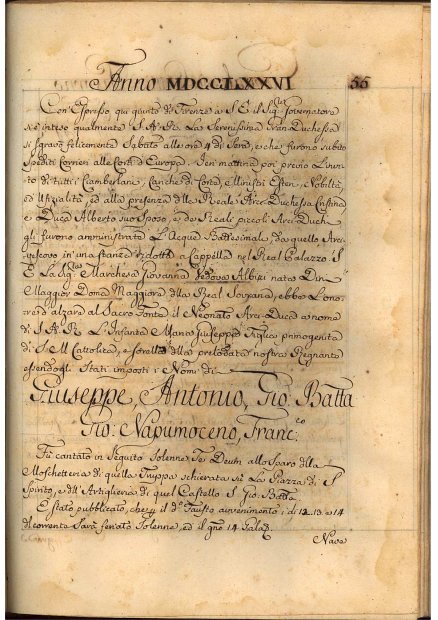 Anno MDCCLXXVI 55
Con Espresso qui giunto di Firenze à S. E. il Sig. Governatore
s'è inteso qualmente S. A. R. La Serenissima Gran Duchessa
si sgravò felicemente Sabato alle ore 4 di Sera, e che furono subito
spediti Corrieri alle Corti d'Europa. Jeri mattina poi previo L'invi-
to di tutti i Ciamberlani, Cariche di Corte, Ministri Esteri, Nobiltà,
ed Ufizialità, ed alla presenza della Reale Arci-Duchessa Cristina
e Duca Alberto suo Sposo, e de Reali piccoli Arci-Duch-
gli furono amministrate L'Acque Battesimali da quello Arci-
vescovo in una stanza ridotta a Cappella nel Real Palazzo. S.
E. La Sig.ra Marchesa Giovanna Vedova Albizi nata
Maggior Dona Maggiora della Real Sovrana, ebbe L'ono-
re d'alzare al Sacro Fonte il Neonato Arci-Duca a nome
di S. A. R. L'Infanta Maria Giuseppa Figlia primogenita
di S. M. Cattolica, e sorella della prelodata nostra Regnante
essendogli stati imposti i Nomi di
Giuseppe, Antonio, Gio: Batta
Gio: Napumoceno, Franc.co
Fù cantato in seguito solenne Te Deum allo sparo della
Moschetteria di quella Truppa schierata sù La Piazza di S.
Spirito, e dell'Artiglieria di quel Castello S. Gio: Batta.
È stato pubblicato, che il d.o Fausto avvenimento i dì 12. 13. e 14
del corrente sarà feriato solenne, ed il gno 14 Gala
Nave